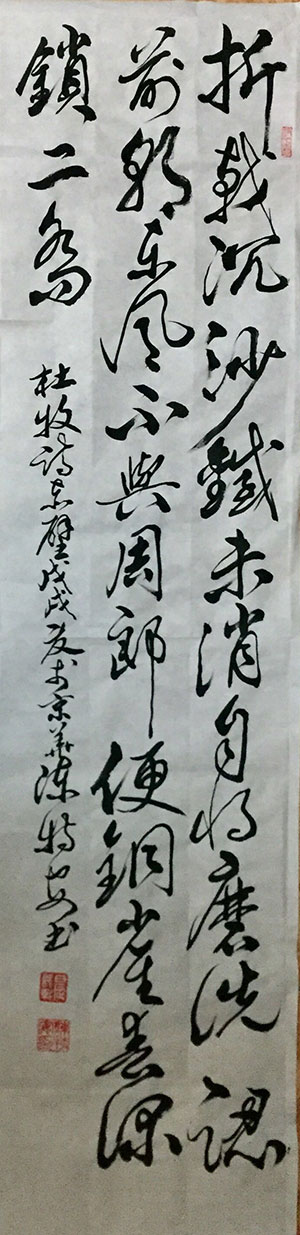 折戟沉沙鐵未消自將磨洗認
前朝東風不與周郎便銅雀春深
鎖二喬
杜牧詩赤壁戊戌夏於京華陳特安書